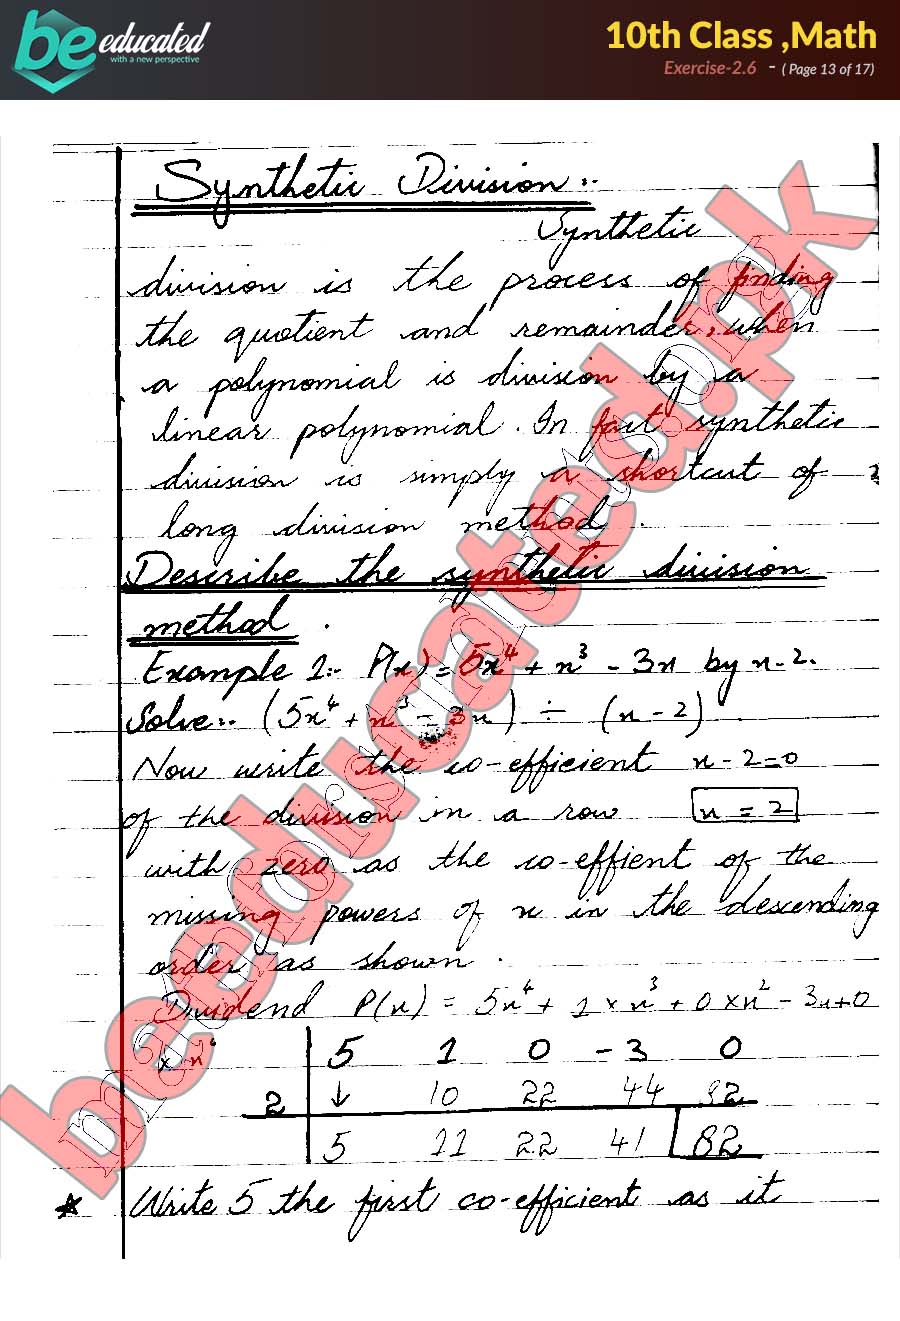 be educated
with a new perspective
10th Class ,Math
Exercise-2.6 - ( Page 13 of 17)
Synthetic Division :-
Synthetic
division is the process of finding
the quotient and remainder, when
a polynomial is division by a
linear polynomial. In fact synthetic
division is simply a shortcut of
long division method.
Describe the synthetic division
method.
Example 1:- P(x) = 5x⁴ + x³ - 3x by x-2.
Solve:- (5x⁴ + x³ - 3x) ÷ (x - 2)
Now write the co-efficient x - 2=0
of the division in a row x = 2
with zero as the co-effient of the
missing powers of x in the descending
order as shown.
Dividend P(x) = 5x⁴ + 1 × x³ + 0 × x² - 3x+0
× x⁰
5 1 0 -3 0
2 ↓ 10 22 44 82
5 11 22 41 82
* Write 5 the first co-efficient as it
beeducated.pk